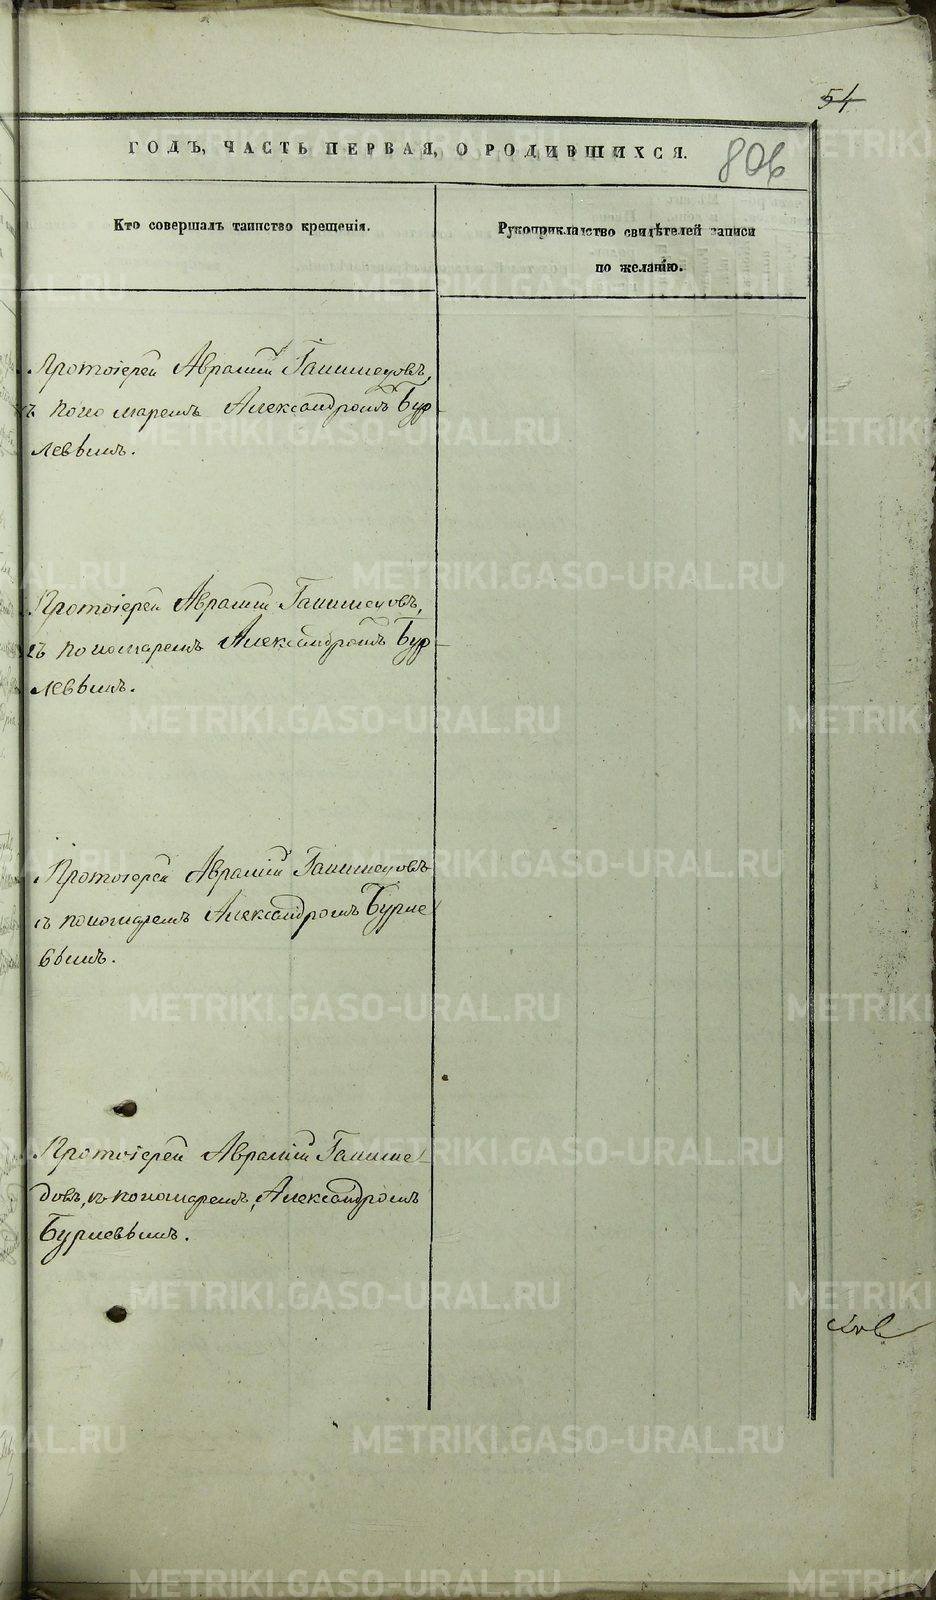 54
ГОДЪ, ЧАСТЬ ПЕРВАЯ, О РОДИВШИХСЯ.
806
Кто совершалъ таинство крещенія.
Рукоприкладство свидѣтелей записи
по желанію.
Протоіерей Аврамій
съ пономаремъ Александромъ Бур
левымъ.
Протоіерей Аврамій
съ пономаремъ Александромъ Бур
левымъ.
Протоіерей Аврамій
съ пономаремъ Александромъ Бурле
вымъ.
Протоіерей Аврамій
съ пономаремъ, Александромъ
Бурлевымъ.
METRIKI.GASO-URAL.RU